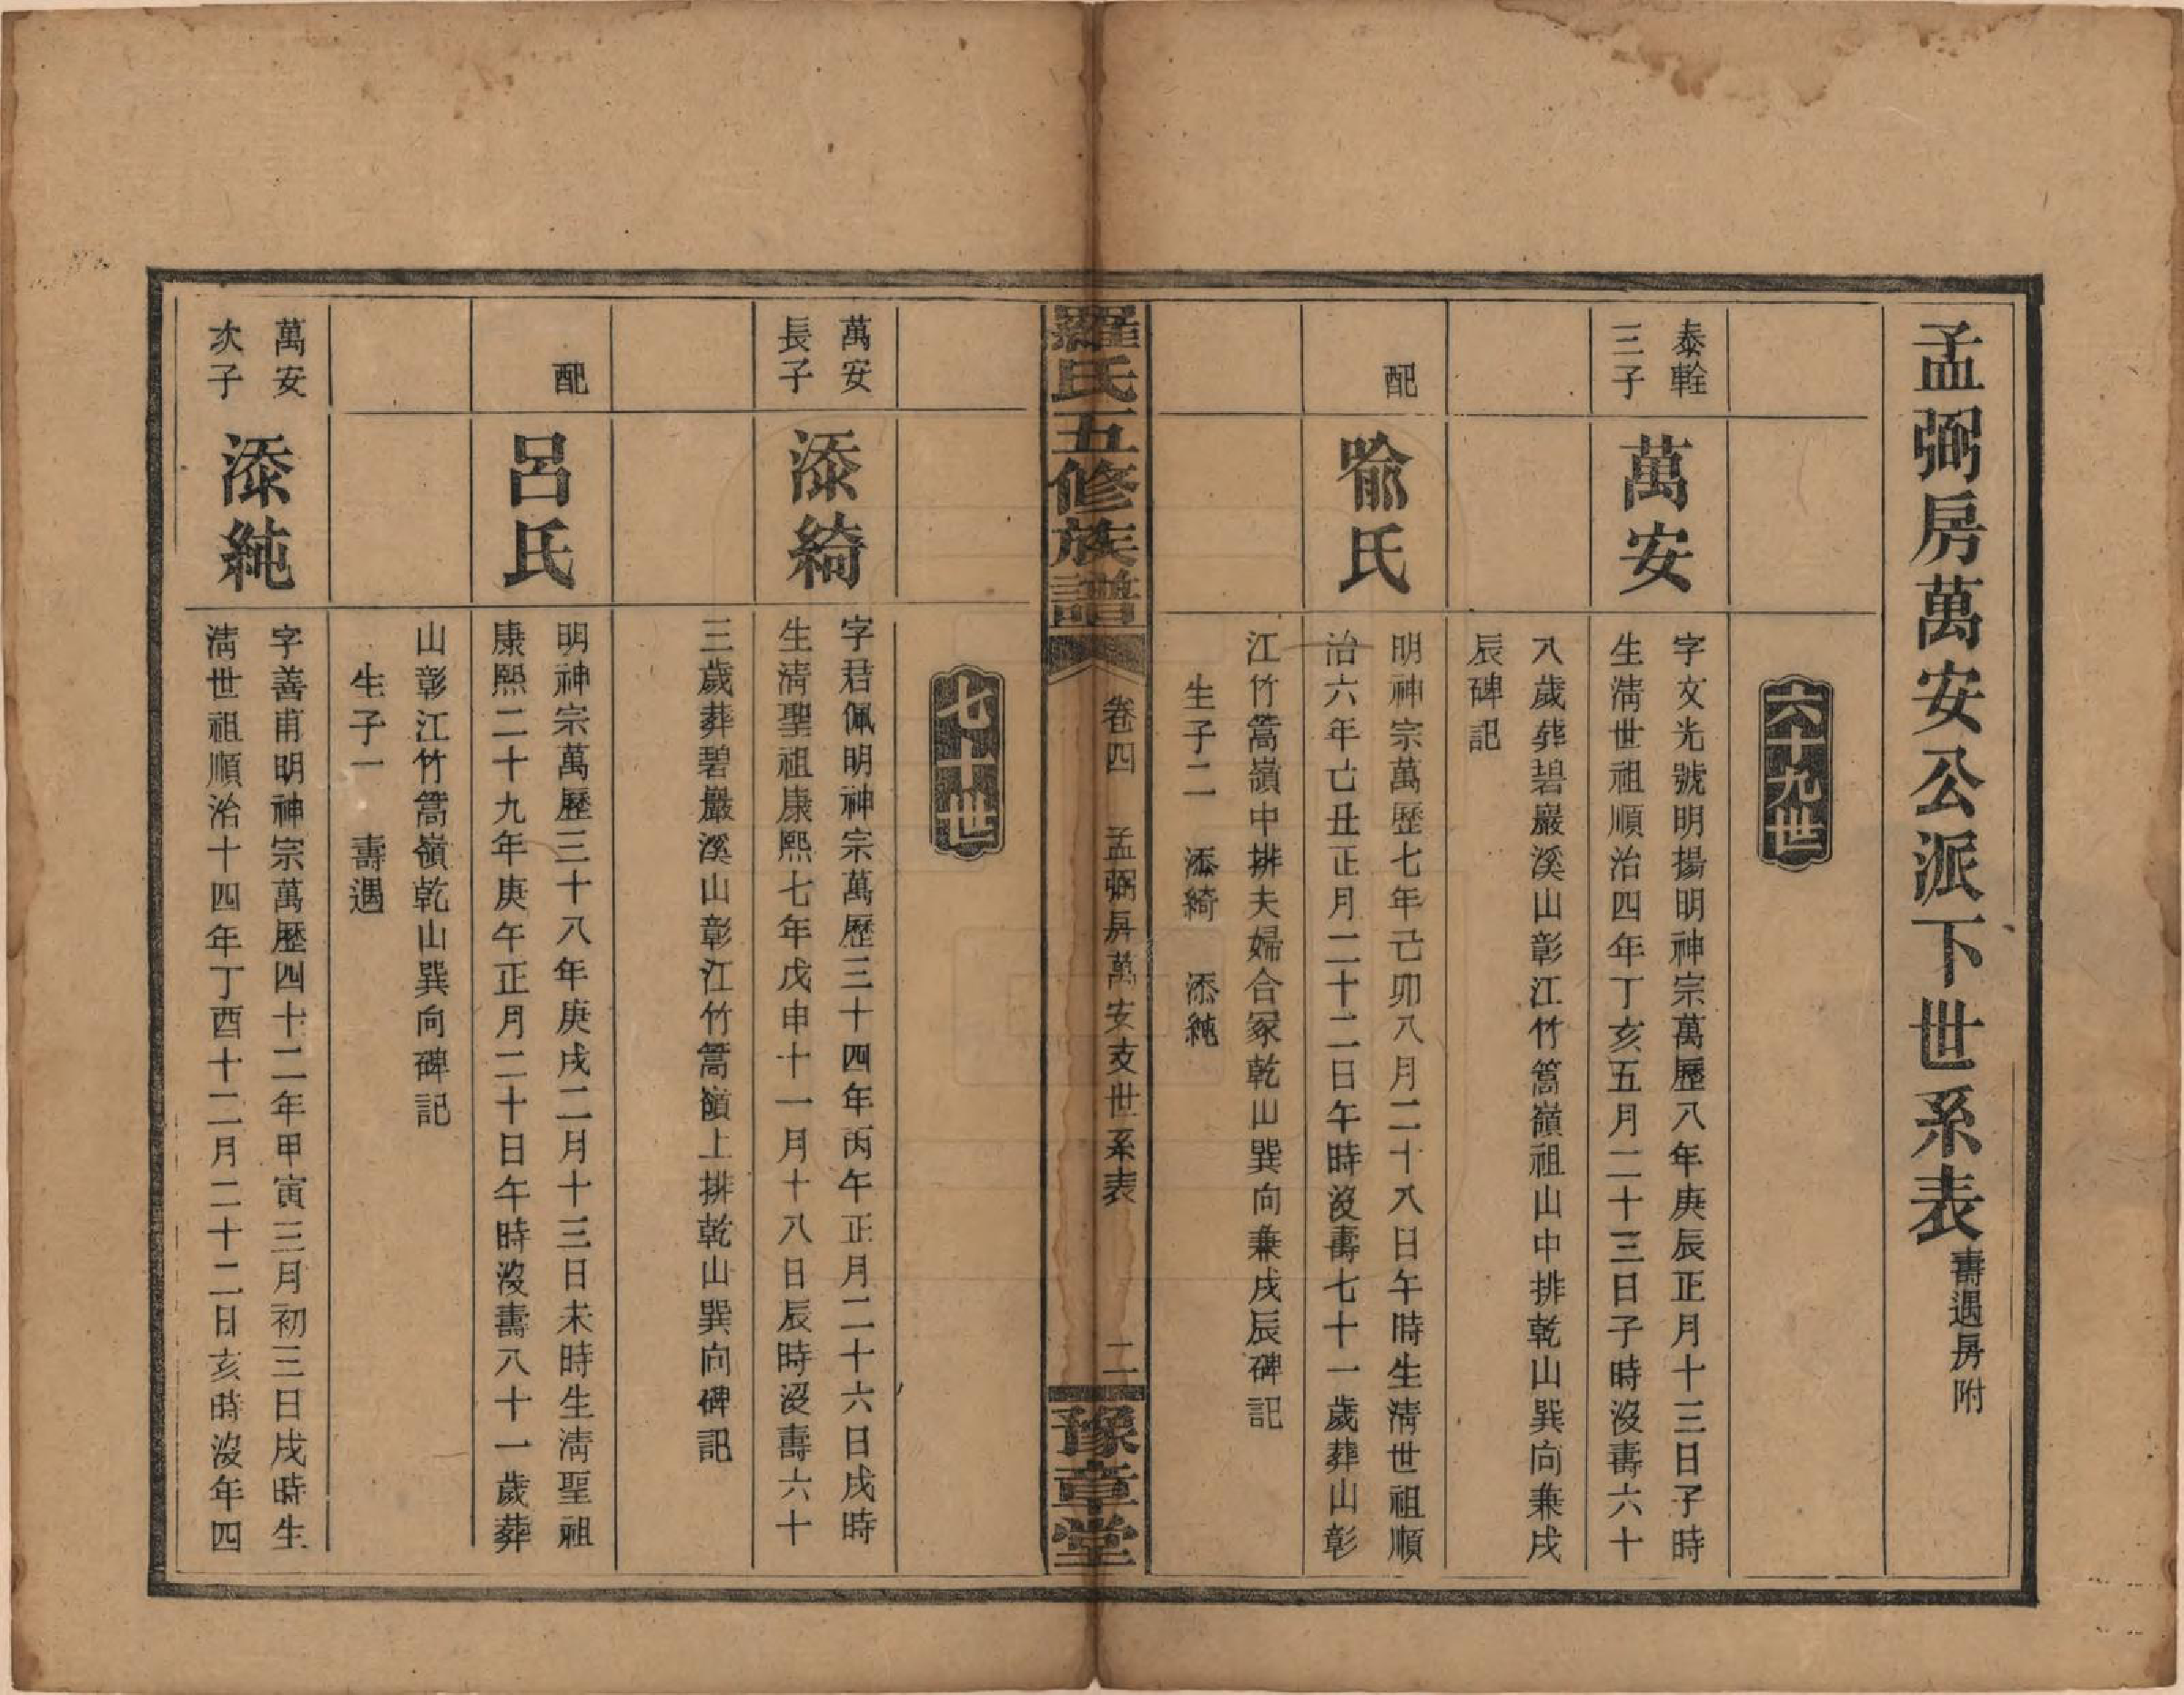 孟弼房萬安公派下世系表壽遇房附
六十九世
泰輇
三子
萬安
字文光號明揚明神宗萬歷八年庚辰正月十三日子時
生淸世祖順治四年丁亥五月二十三日子時沒壽六十
八歲葬碧巖溪山彰江竹篙嶺祖山中排乾山巽向兼戌
辰碑記
配
喻氏
明神宗萬歷七年己卯八月二十八日午時生淸世祖順
治六年己丑正月二十二日午時沒壽七十一歲葬山彰
江竹篙嶺中排夫婦合冢乾山巽向兼戌辰碑記
生子二 添綺 添純
羅氏五修族譜
卷四 孟弼房萬安支世系表 二
豫章堂
七十世
萬安
長子
添綺
字君佩明神宗萬歷三十四年丙午正月二十六日戌時
生淸聖祖康熙七年戊申十一月十八日辰時沒壽六十
三歲葬碧巖溪山彰江竹篙嶺上排乾山巽向碑記
配
呂氏
明神宗萬歷三十八年庚戌二月十三日未時生淸聖祖
康熙二十九年庚午正月二十日午時沒壽八十一歲葬
山彰江竹篙嶺乾山巽向碑記
生子一 壽遇
萬安
次子
添純
字善甫明神宗萬歷四十二年甲寅三月初三日戌時生
淸世祖順治十四年丁酉十二月二十二日亥時沒年四